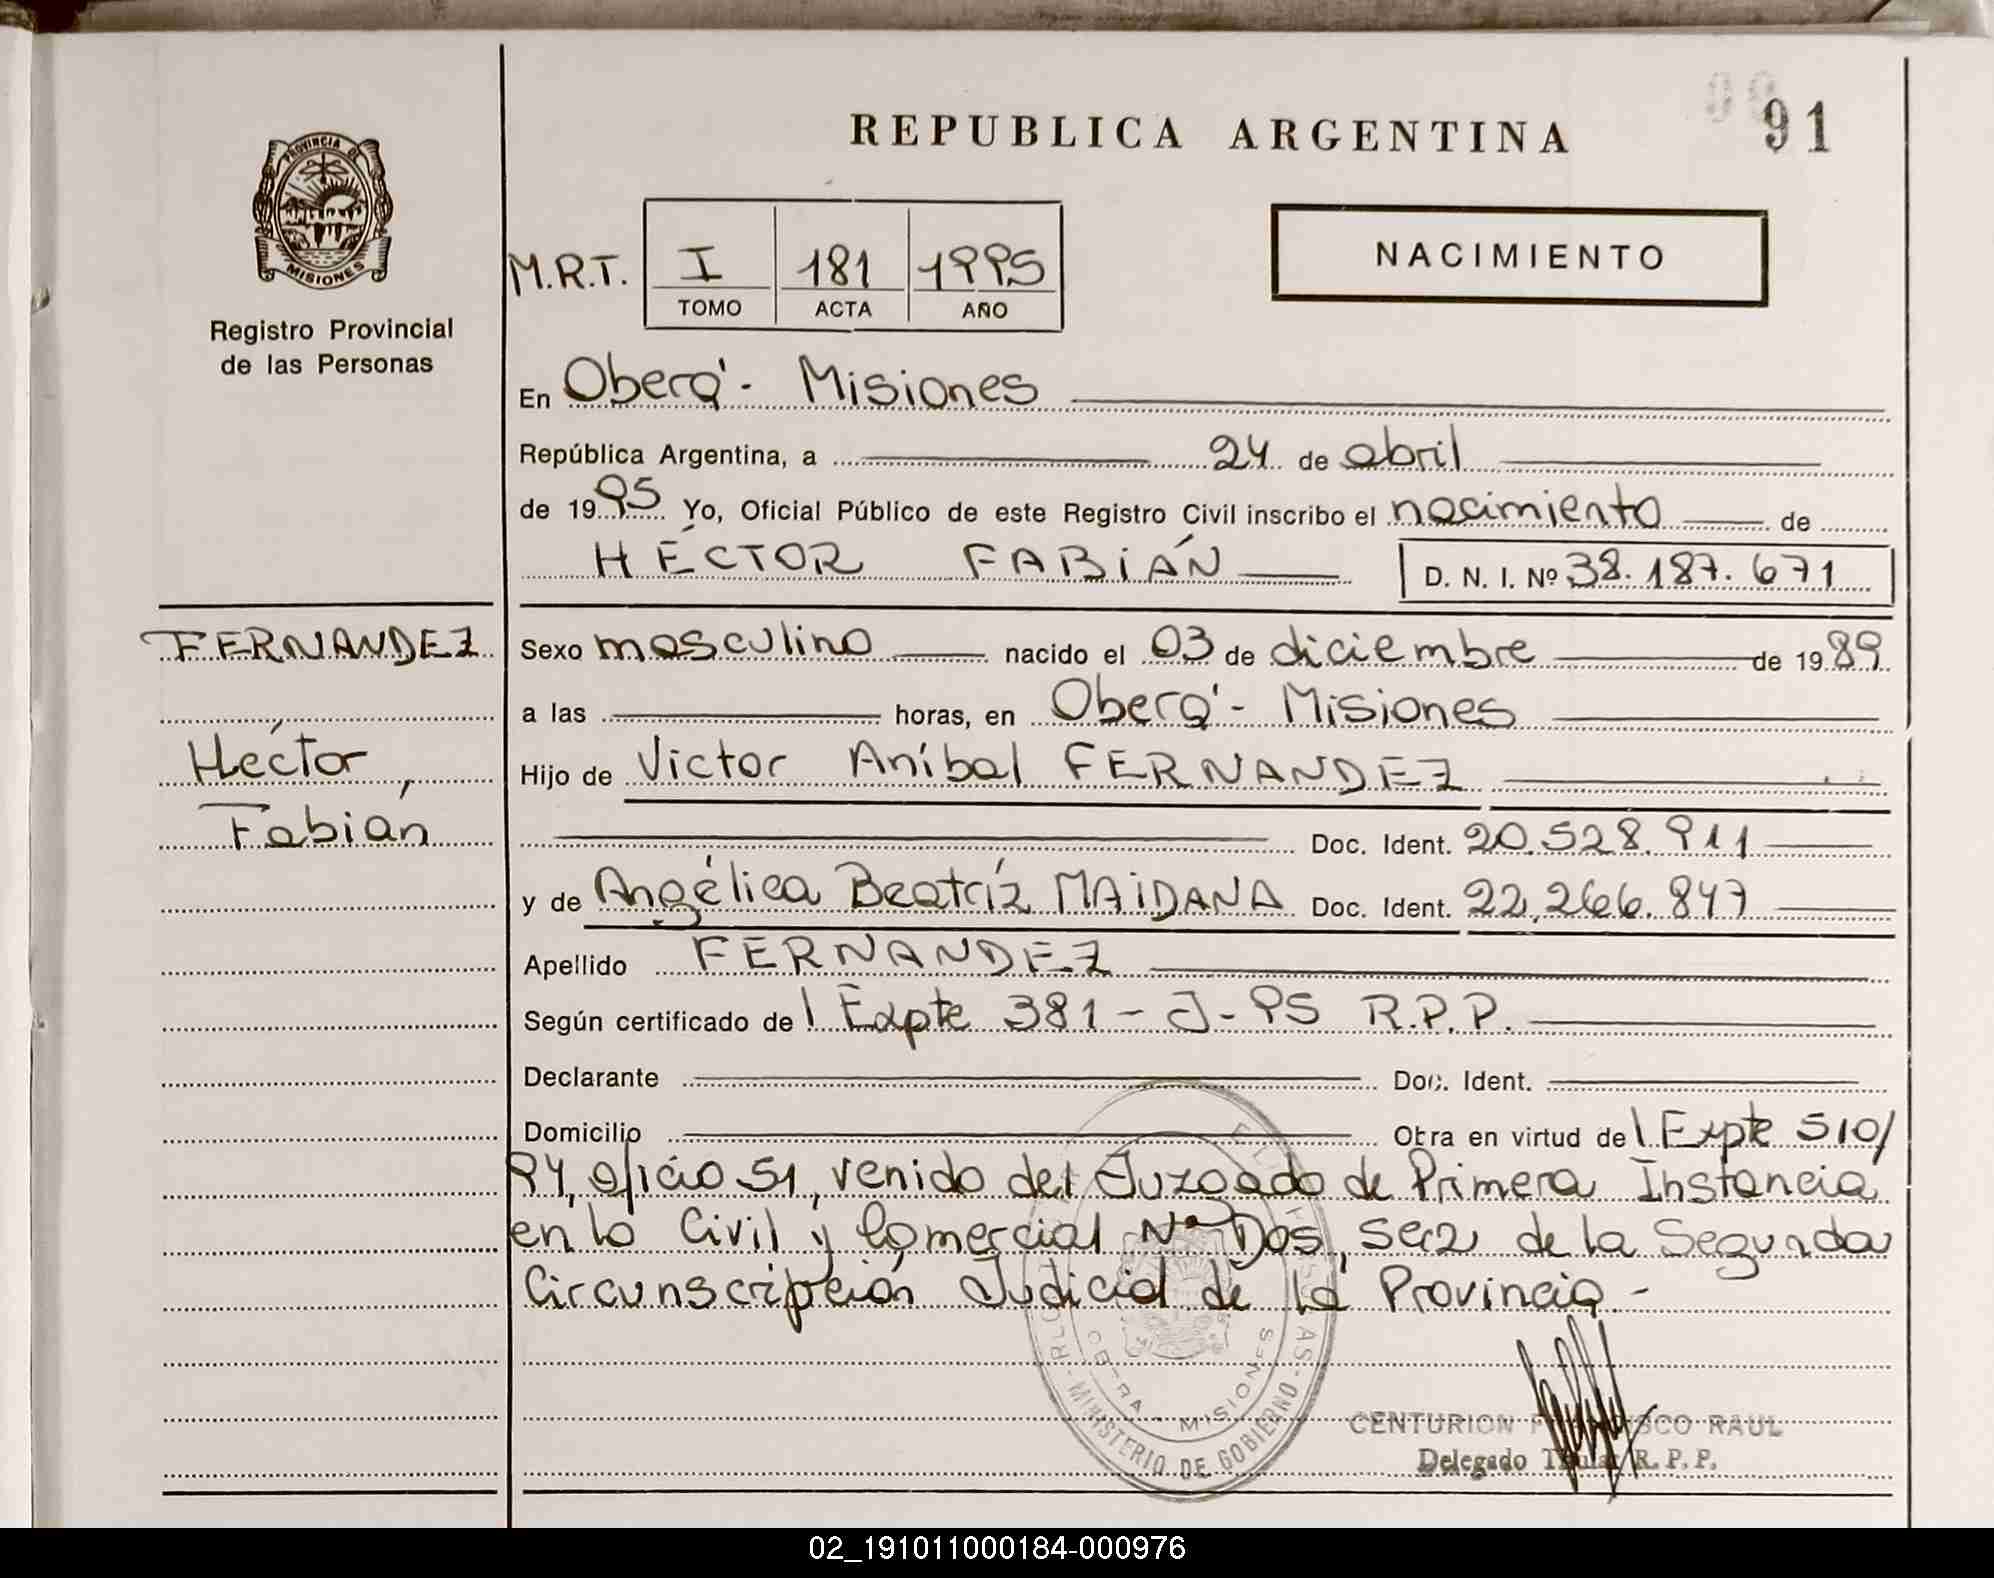 REPUBLICA ARGENTINA
91
PROVINCIA DE
MISIONES
Registro Provincial
de las Personas
M.R.T.
I 181 1995
TOMO ACTA AÑO
NACIMIENTO
En Oberá - Misiones
República Argentina, a 24 de abril
de 1995 Yo, Oficial Público de este Registro Civil inscribo el nacimiento de
HÉCTOR FABIÁN D. N. I. Nº 38.187.671
FERNANDEZ
Héctor
Fabián
Sexo masculino nacido el 03 de diciembre de 1989
a las horas, en Oberá - Misiones
Hijo de Victor Aníbal FERNANDEZ
Doc. Ident. 20.528.911
y de Angélica Beatríz MAIDANA Doc. Ident. 22.266.847
Apellido FERNANDEZ
Según certificado de l Expte 381 - J - 95 R.P.P.
Declarante Doc. Ident.
Domicilio Otra en virtud de l Expte 510/
94, oficio 51, venido del Juzgado de Primera Instancia
en lo Civil y Comercial Nº Dos, sec 2 de la Segunda
Circunscripción Judicial de la Provincia -
OBERA - MISIONES
MINISTERIO DE GOBIERNO
CENTURION FRANCISCO RAUL
Delegado Titular R. P. P.
02_191011000184-000976